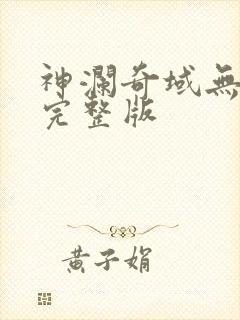 神瀾奇域無
完整版
黄子娟